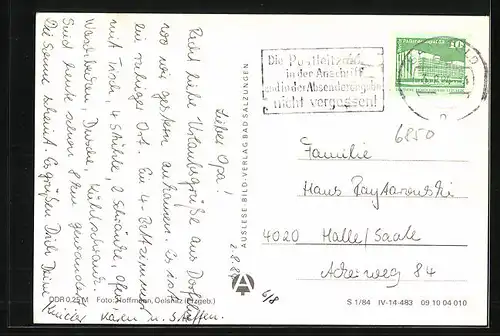 Lieber Opa!
2.8.84
Recht liebe Urlaubsgrüße aus
wo wir gestern ankamen. Es ist
ein ruhiger Ort. Ein 4-Bettzimmer
mit Tisch, 4 Stühle, 2 Schränke, Ofen
Waschbecken, Dusche, Kühlschrank.
Sind heute schon 8 km gewandert.
Die Sonne scheint. Es grüßen Dich Deine
Kinder Karen u. Steffen.
6/8
DDR 0,25 M Foto: Hoffmann, Oelsnitz (Erzgeb.)
AUSLESE-BILD-VERLAG BAD SALZUNGEN
A
Die Postleitzahl
in der Anschrift
und in der Absenderangabe
nicht vergessen!
10
6850
Familie
Hans
4020 Halle/Saale
Ackerweg 84
S 1/84 IV-14-483 09 10 04 010